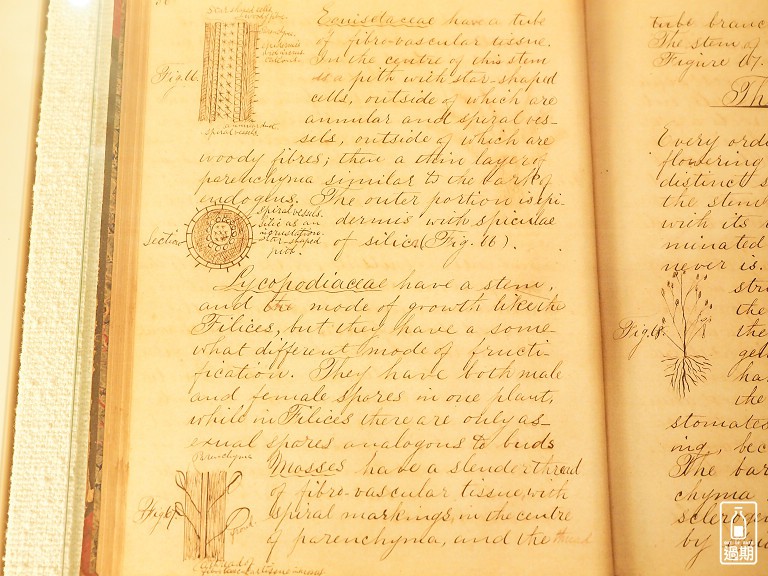 Equisetaceae have a tube
of fibro-vascular tissue.
In the centre of this stem
is a pith with star-shaped
cells, outside of which are
annular and spiral ves-
sels, outside of which are
woody fibres; then a thin layer of
parenchyma similar to the bark of
endogens. The outer portion is epi-
dermis with spiculae
of silica (Fig. 66).
Fig. 66.
annular duct
spiral vessels
Section
Spiral vessels.
Silic as an
incrustation.
Star-shaped
pith.
Lycopodiaceae have a stem,
and the mode of growth like the
Filices, but they have a some-
what different mode of fructi-
fication. They have both male
and female spores in one plant,
while in Filices there are only as-
exual spores analogous to buds
Parenchyma
Mosses have a slender thread
of fibro-vascular tissue, with
spiral markings, in the centre
of parenchyma, and the thread
Fig. 67.
frond.
tube branc
The stem of
Figure 67.
Th
Every ord
flowering
distinct s
the stem
with its
minated
never is.
str
the
the
gel
ha
the
Fig. 68.
stomates
ing, bec
The bar
chyma
sclerog
by
過期